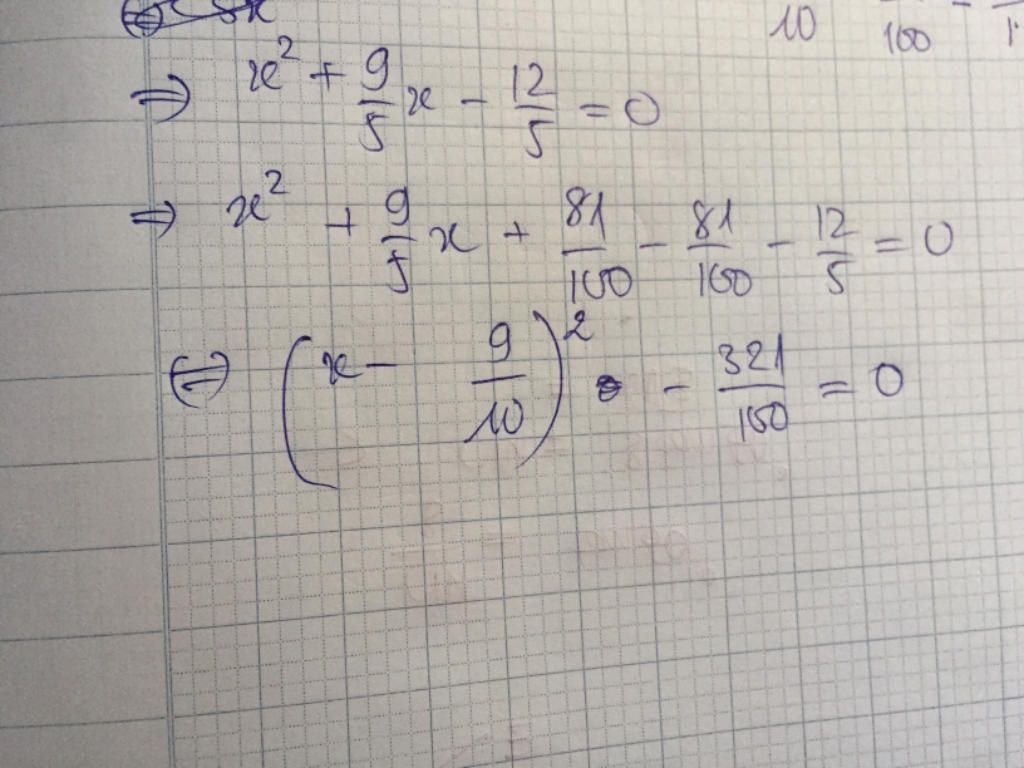 10 100
⇒ x² + 9/5 x - 12/5 = 0
⇒ x² + 9/5 x + 81/100 - 81/100 - 12/5 = 0
⇔ (x - 9/10)² - 321/100 = 0